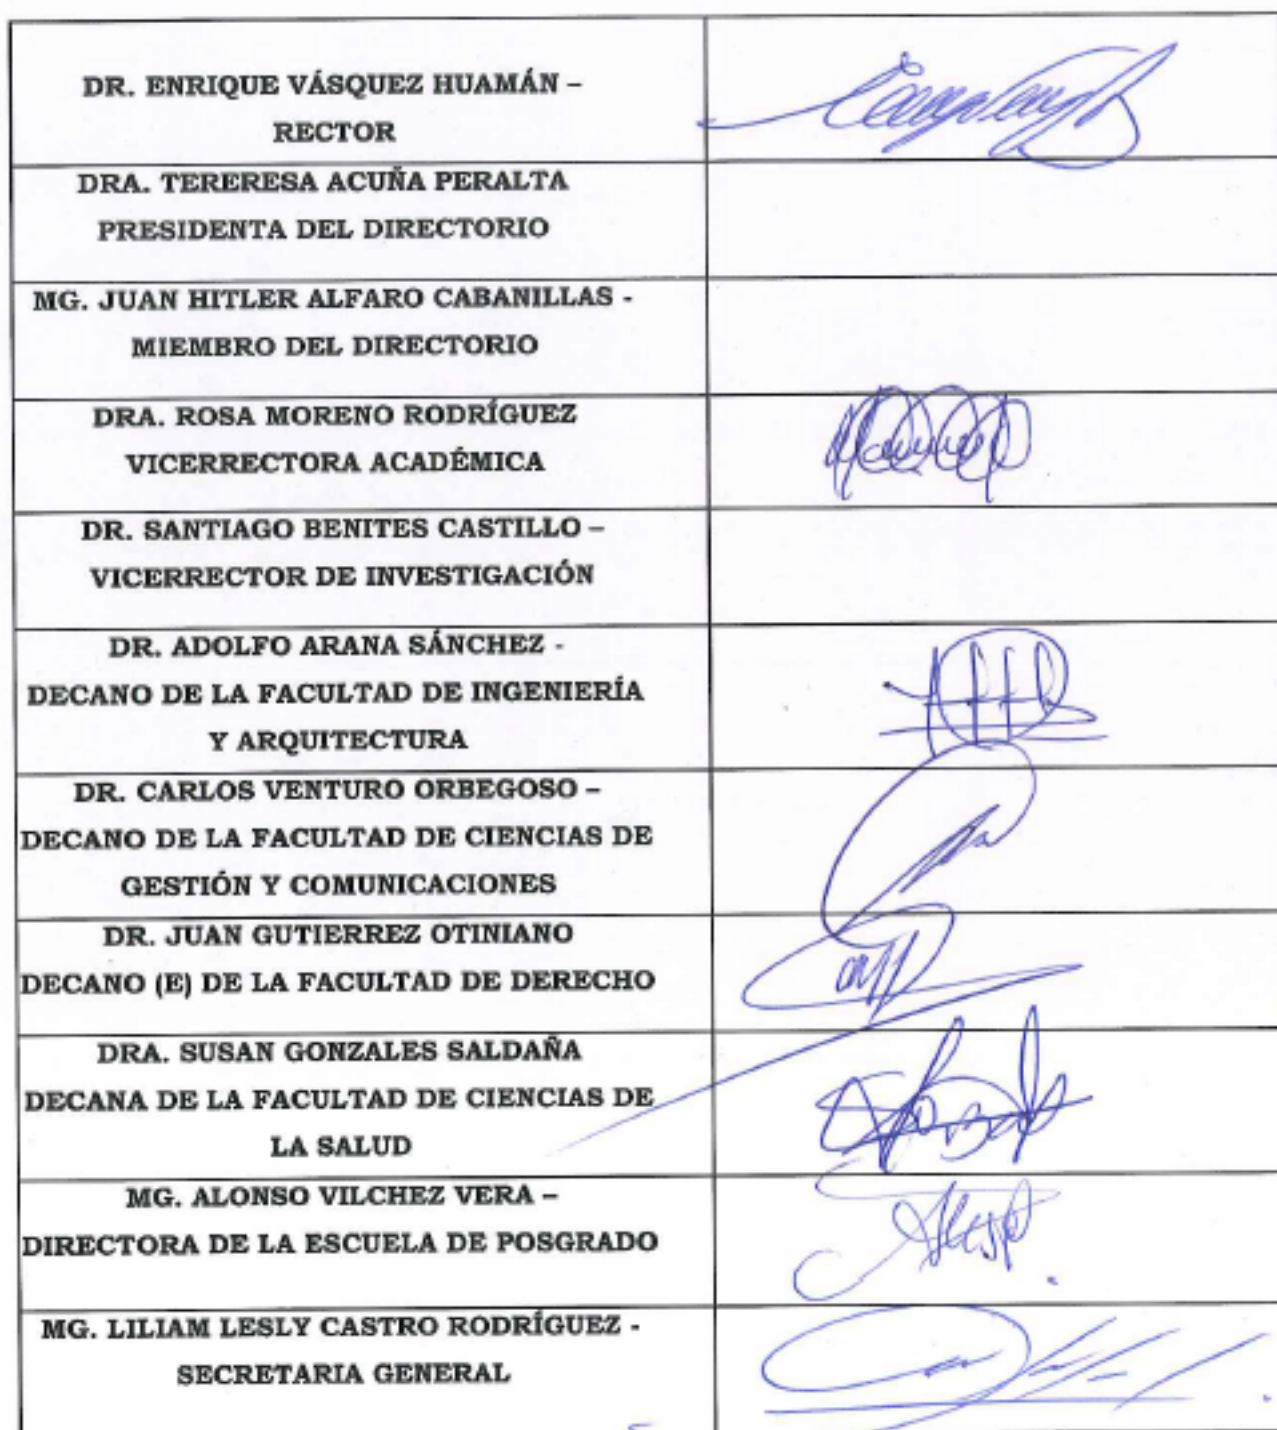 DR. ENRIQUE VÁSQUEZ HUAMÁN –
RECTOR
DRA. TERERESA ACUÑA PERALTA
PRESIDENTA DEL DIRECTORIO
MG. JUAN HITLER ALFARO CABANILLAS -
MIEMBRO DEL DIRECTORIO
DRA. ROSA MORENO RODRÍGUEZ
VICERRECTORA ACADÉMICA
DR. SANTIAGO BENITES CASTILLO –
VICERRECTOR DE INVESTIGACIÓN
DR. ADOLFO ARANA SÁNCHEZ -
DECANO DE LA FACULTAD DE INGENIERÍA
Y ARQUITECTURA
DR. CARLOS VENTURO ORBEGOSO –
DECANO DE LA FACULTAD DE CIENCIAS DE
GESTIÓN Y COMUNICACIONES
DR. JUAN GUTIERREZ OTINIANO
DECANO (E) DE LA FACULTAD DE DERECHO
DRA. SUSAN GONZALES SALDAÑA
DECANA DE LA FACULTAD DE CIENCIAS DE
LA SALUD
MG. ALONSO VILCHEZ VERA –
DIRECTORA DE LA ESCUELA DE POSGRADO
MG. LILIAM LESLY CASTRO RODRÍGUEZ -
SECRETARIA GENERAL